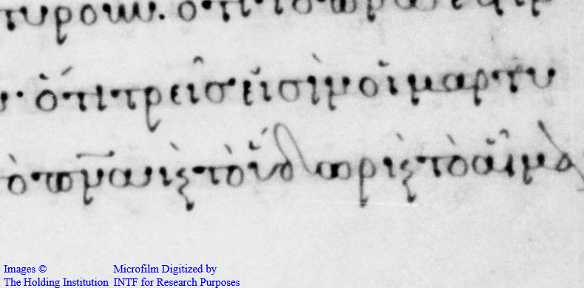 τυρουν. ὅτι τὸ
ὅτι τρεῖς εἰσὶν οἱ μαρτυ
ὸ πν̅α καὶ τὸ ὕδωρ καὶ τὸ αἷμα
Images © Microfilm Digitized by
The Holding Institution INTF for Research Purposes